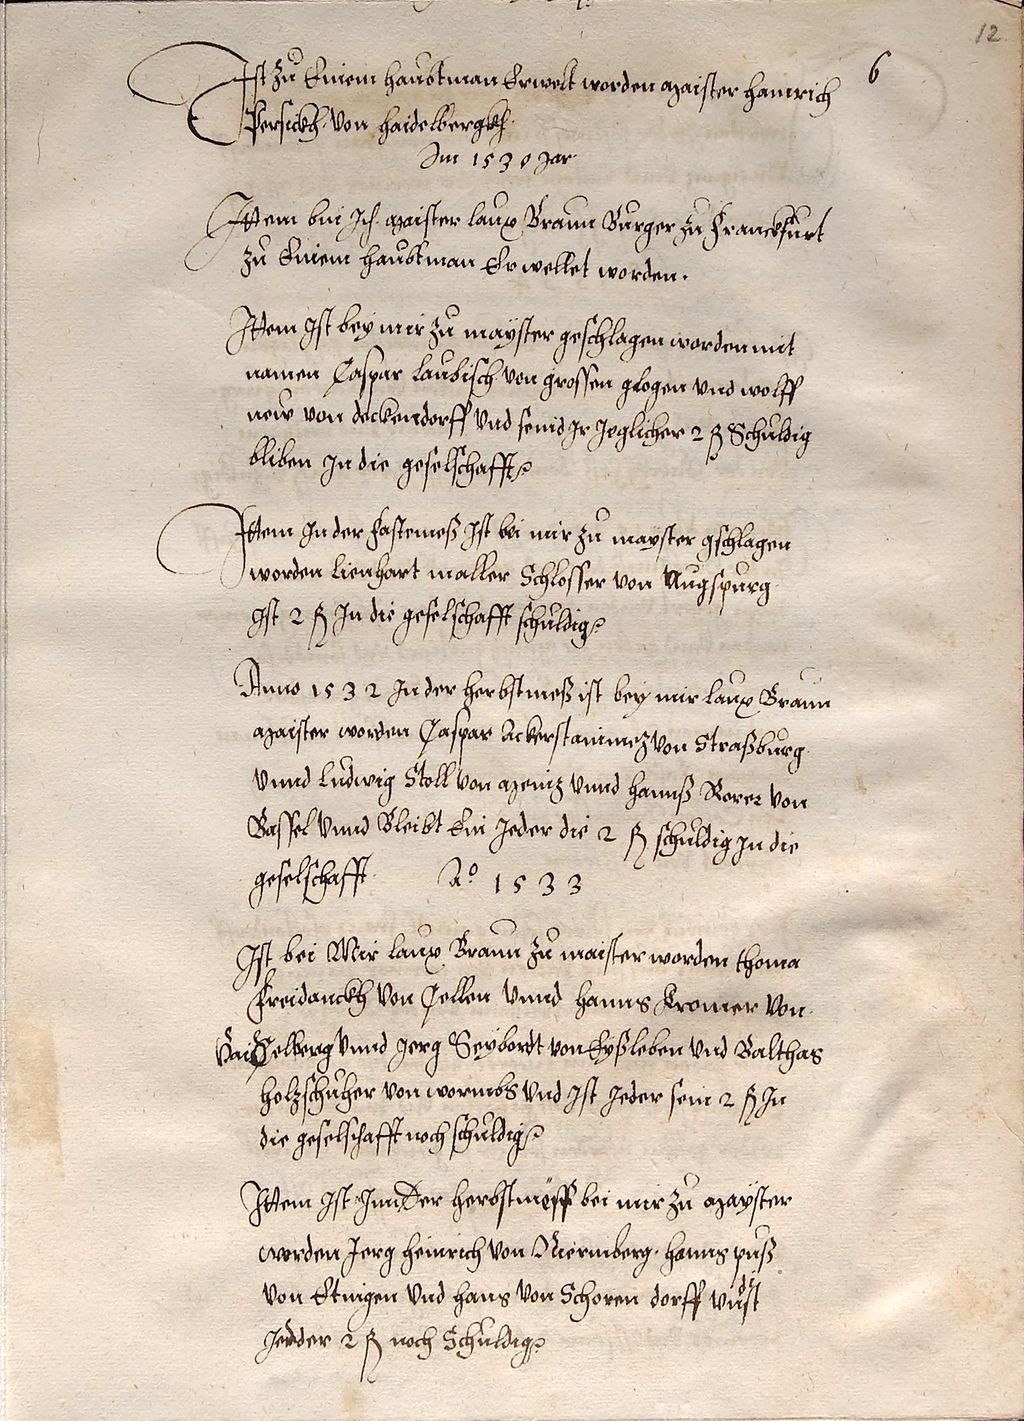 12
6
Ist zu Einem haubtman Erwelt worden maister hainrich
Persickh von haidelbergkh
Im 1530 Jar
Ittem bin Ich maister laux Braun Burger zu Franckfurt
zu Einem haubtman Erwellet worden.
Ittem Ist bey mir zu mayster geschlagen worden mit
namen Caspar laubisch von grossen glogen vnd wolff
new von deckendorff vnd seind Ir Jeglicher 2 ß Schuldig
bliben In die geselschafft
Ittem In der fastemeß Ist bei mir zu mayster gschlagen
worden lienhart maller Schlosser von Augspurg
Ist 2 ß In die geselschafft schuldig
Anno 1532 In der herbstmeß ist bey mir laux Braun
maister worden Caspar Ackerstaimez von Straßburg
vnnd ludwig Stoll von menz vnnd hannß Rorer von
Bassel vnnd Bleibt Ein Jeder die 2 ß schuldig In die
geselschafft Ao 1533
Ist bei Mir laux Braun zu maister worden thoma
Freidanckh von Cellen vnnd hanns Kromer von
vnnd Jerg Seybordt von Eyßleben vnd Balthas
holzschuher von wormbs vnd Ist Jeder sein 2 ß In
die geselschafft noch schuldig
Ittem Ist Inn Der herbstmess bei mir zu mayster
worden Jerg heinrich von Niermberg hanns puß
von Etingen vnd hans von Schoren dorff vnd ist
Jedder 2 ß noch Schuldig